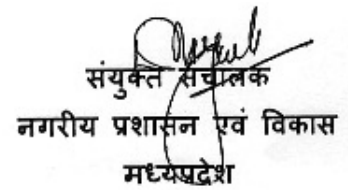 संयुक्त संचालक
नगरीय प्रशासन एवं विकास
मध्यप्रदेश